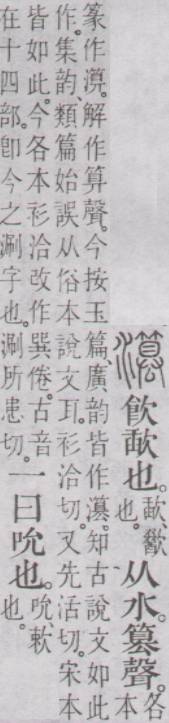 飮歃也。歃、歠也。从水。篡聲。各本
篆作。解作算聲。今按玉篇、廣韵皆作。知古說文如此
作。集韵、類篇始誤从俗本說文耳。衫洽切。又先活切。宋本
皆如此。今各本衫洽改作巽倦。古音
在十四部。卽今之涮字也。涮所患切。
一曰吮也。吮、欶也。